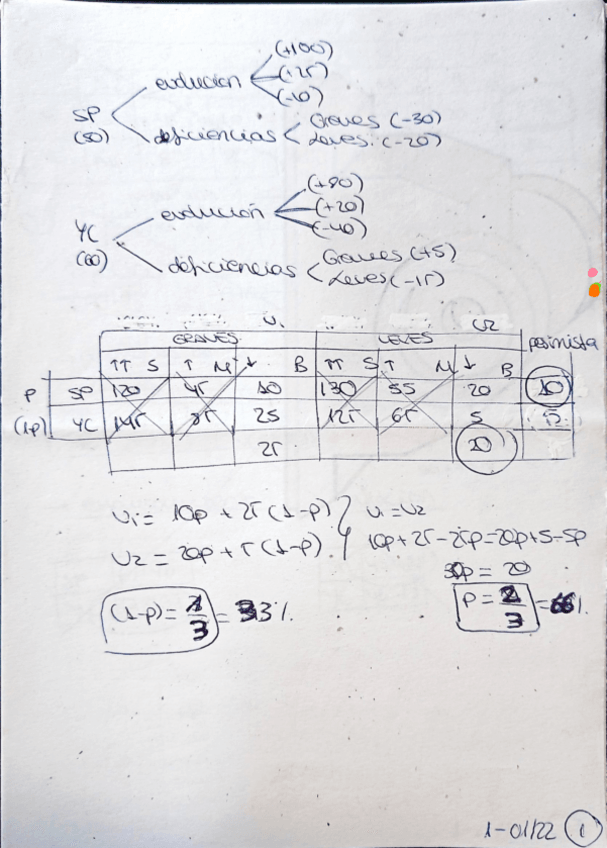 (+100)
evolución (+25)
(-10)
SP
(50)
deficiencias Graves (-30)
Leves (-20)
(+80)
evolución (+20)
(-40)
YC
(60)
deficiencias Graves (+5)
Leves (-15)
U1 U2
GRAVES LEVES pesimista
↑↑ S ↑ M ↓ B ↑↑ S ↑ M ↓ B
P SP 120 45 10 130 55 20 10
(1-p) YC 145 85 25 125 65 5 5
25 20
U1 = 10p + 25(1-p) U1 = U2
U2 = 20p + 5(1-p) 10p + 25 - 25p = 20p + 5 - 5p
30p = 20
(1-p) = 1/3 = 33% p = 2/3 = 66%
1-01/22 1